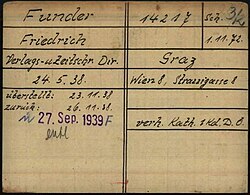 Funder 14217 Sch.
Friedrich 1.11.72.
Verlags-u. Zeitschr. Dir. Graz
24.5.38. Wien 8, Strozzigasse 8
überstellt: 23.11.38
zurück: 26.11.38
27. Sep. 1939
entl verh. Kath. 1 Kd. D.Ö.